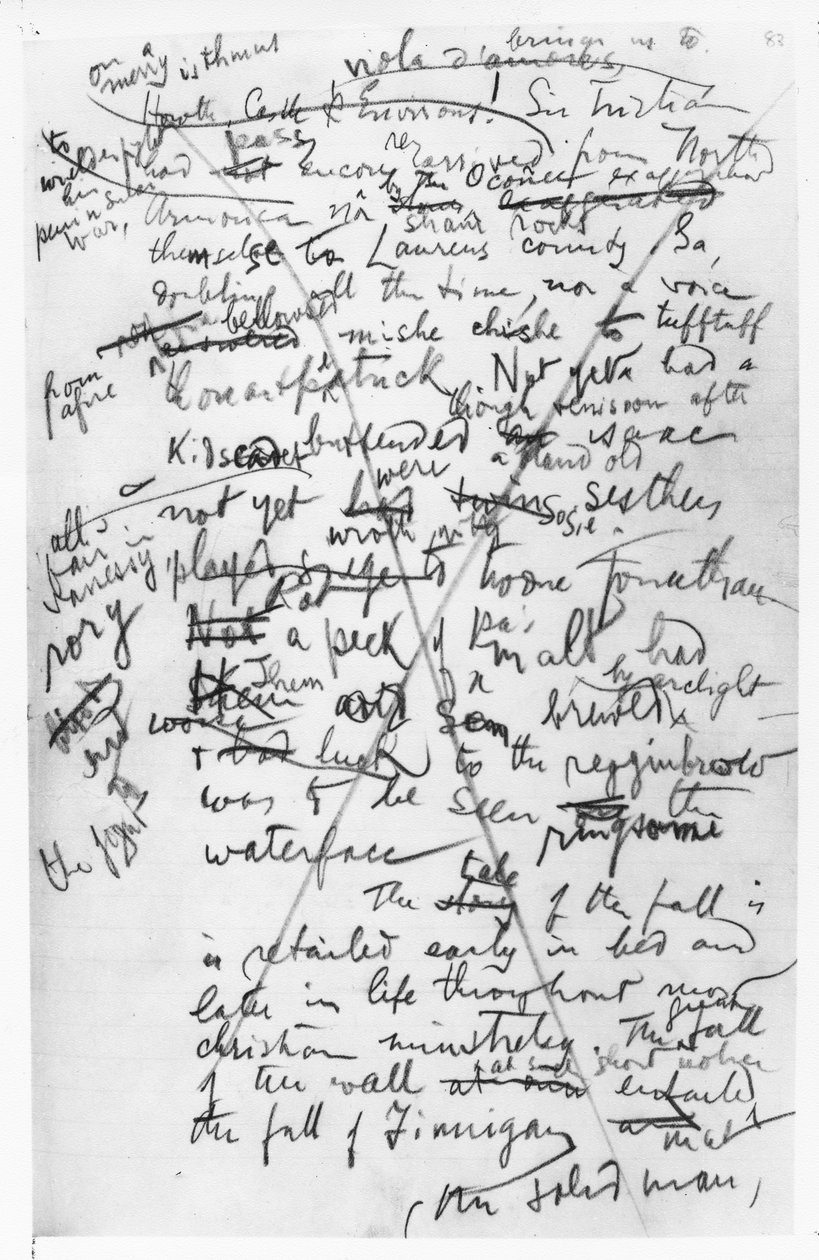 83
brings us to
on a merry isthmus
viola d'amores,
Howth, Castle & Environs! Sir Tristram
to wielderfight his peninsular war,
pass
had not encore rearrived from North
by the Oconee exaggerated
Armorica nor stones exaggerated
sham rocks
themselse to Laurens county, Ga,
doubling all the time, nor a voice
bellowsed
from afire
answered mishe chishe to tufftuff
thouartpatrick. Not yet had a
though venisoon after
Kidscadet buttended an isaac
a bland old
were
not yet had twins sesthers
Sosie
all's fair in vanessy,
wroth with
played siege to twone Jonathan
Rot
Not a peck of pa's malt had
rory
Shem and Sen brewed
by arclight
end to the
& bad luck to the regginbrow
was to be seen the
ringsome
waterface
tale
The story of the fall is
is retailed early in bed and
later in life throughout most
christian minstrelsy. The fall
great
at such short notice
of the wall at once entailed
the fall of Finnigan,
that
the solid man,